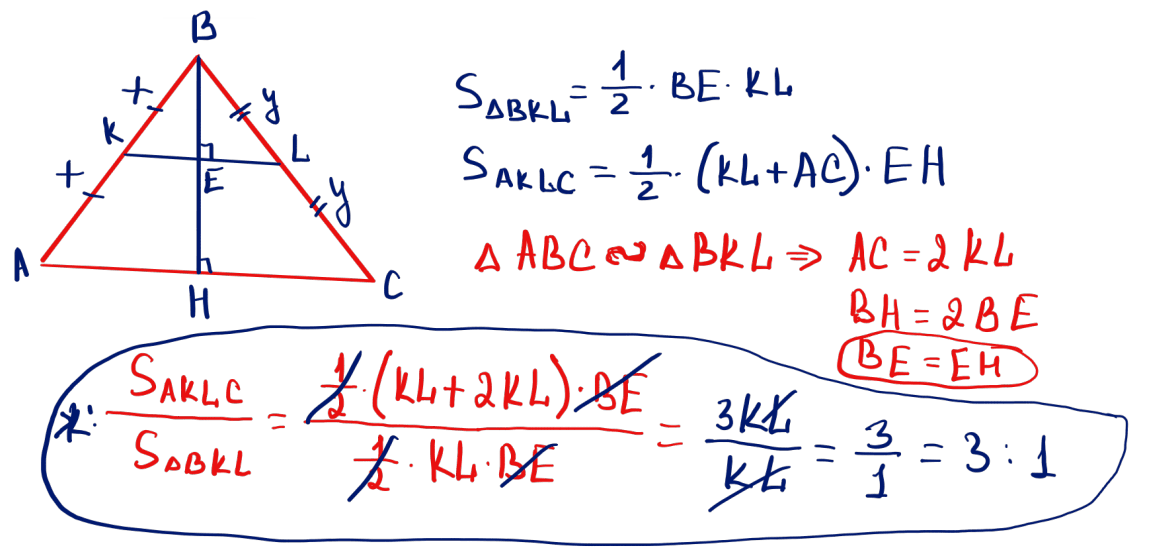 B
+ y
K L
E
+ y
A
H C
S△BKL = 1/2 · BE · KL
SAKLC = 1/2 · (KL + AC) · EH
△ABC ∾ △BKL ⇒ AC = 2KL
BH = 2BE
BE = EH
*: SAKLC/S△BKL = (1/2 · (KL + 2KL) · BE)/(1/2 · KL · BE) = 3KL/KL = 3/1 = 3 : 1